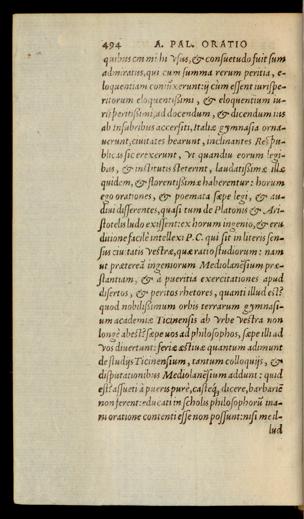 494 A. PAL. ORATIO
quibus cm mihi vsus, & consuetudo fuit sum
admiratus, qui cum summa rerum peritia, e-
loquentiam coniūxerunt: ij cum essent iurispe-
ritorum eloquentissimi, & eloquentium iu-
risperitissimi, ad docendum, & dicendum ius
ab insubribus accersiti, Italiæ gymnasia orna-
uerunt, ciuitates bearunt, inclinantes Resspu-
blicas sic erexerunt, Vt quandiu eorum legi-
bus, & institutis steterint, laudatissimæ illæ
quidem, & florentissimæ haberentur: horum
ego orationes, & poemata sæpe legi, & au-
diui disserentes, quasi tum de Platonis & Ari-
stotelis ludo exissent: ex horum ingenio, & eru
ditione facilè intellexi P. C. qui sit in literis sen-
sus ciuitatis Vestræ, quæ ratio studiorum: nam
ut prætereā ingeniorum Mediolanēsium præ-
stantiam, & a pueritia exercitationes apud
disertos, & peritos rhetores, quanti illud est?
quod nobilissimum orbis terrarum gymnasi-
um academiæ Ticinensis ab Vrbe Vestra non
longè abest? sæpe uos ad philosophos, sæpe illi ad
vos diuertunt: feriæ æstiuæ quantum adimunt
de studijs Ticinensium, tantum colloquijs, &
disputationibus Mediolanēsium addunt: quid
est? assueti à pueris purè, castéq, dicere, barbariē
non ferent: educati in scholis philosophorū ina-
ni oratione contenti esse non possunt: nisi me il-
lud